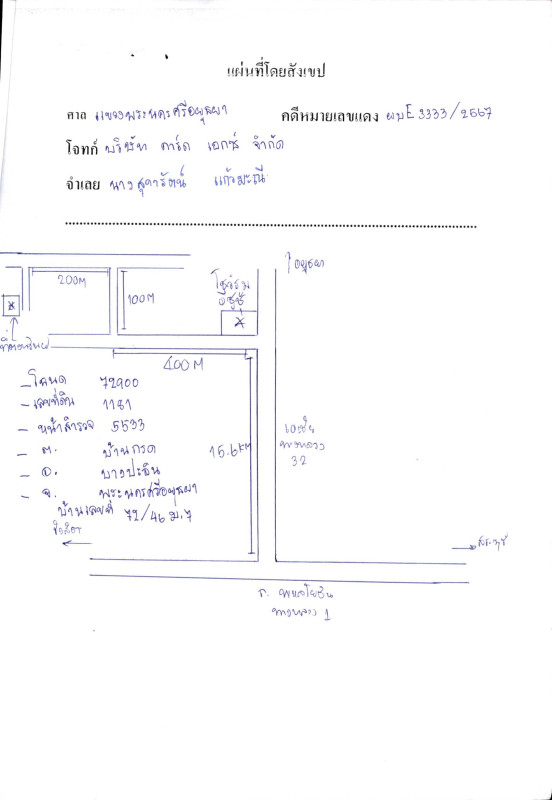 แผ่นที่โดยสังเขป
ศาล แขวงพระนครศรีอยุธยา คดีหมายเลขแดง ผบE3333/2567
โจทก์ บริษัท คาร์ด เอกซ์ จำกัด
จำเลย นางสุดารัตน์ แก้วมะณี
อยุธยา
200M
100M
โรงแรม
400M
- โฉนด 72900
- เลขที่ดิน 1181
- หน้าสำรวจ 5533
- ต. บ้านกรด
- อ. บางปะอิน
- จ. พระนครศรีอยุธยา
บ้านเลขที่ 72/46 ม.7
15.6KM
เอเชีย
ทางหลวง
32
วังน้อย
สระบุรี
ถ. พหลโยธิน
ทางหลวง 1